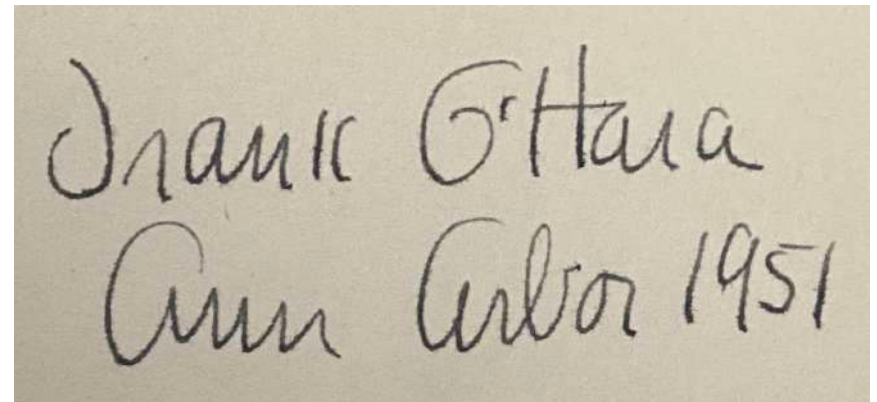 Frank O'Hara
Ann Arbor 1951